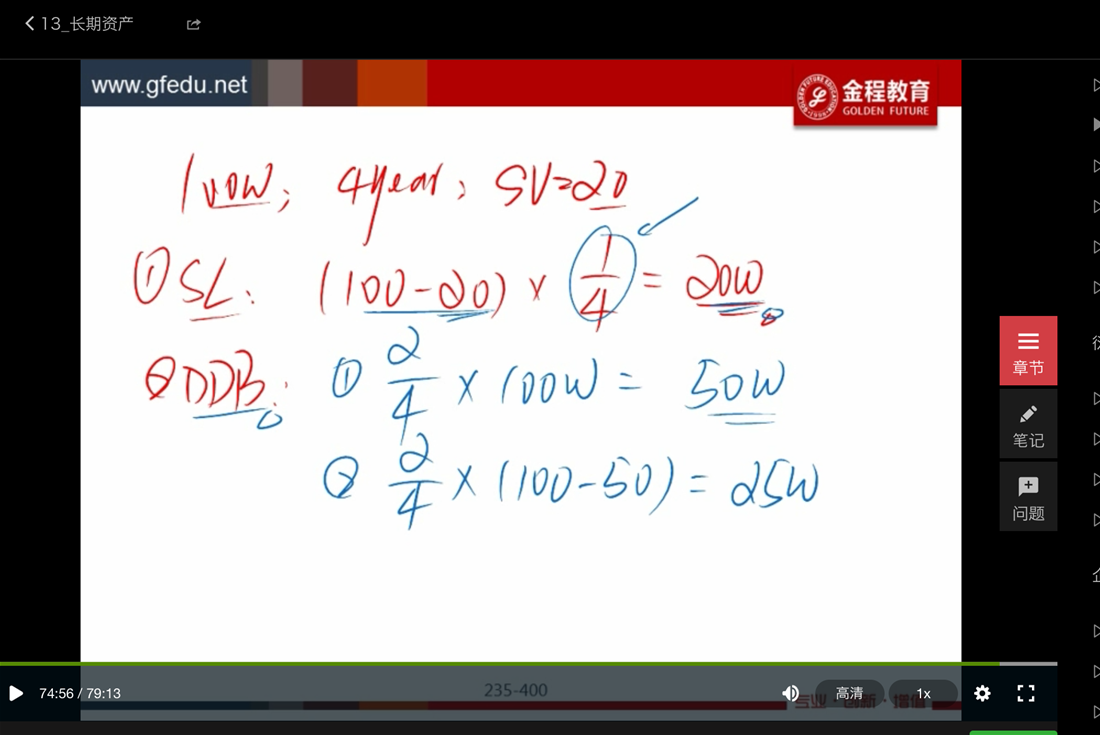 13_长期资产
www.gfedu.net
金程教育
GOLDEN FUTURE
100W; 4year, SV=20
① SL: (100-20) × 1/4 = 20W
② DDB: ① 2/4 × 100W = 50W
② 2/4 × (100-50) = 25W
章节
笔记
问题
235-400
专业·创新·增值
74:56 / 79:13
高清
1x